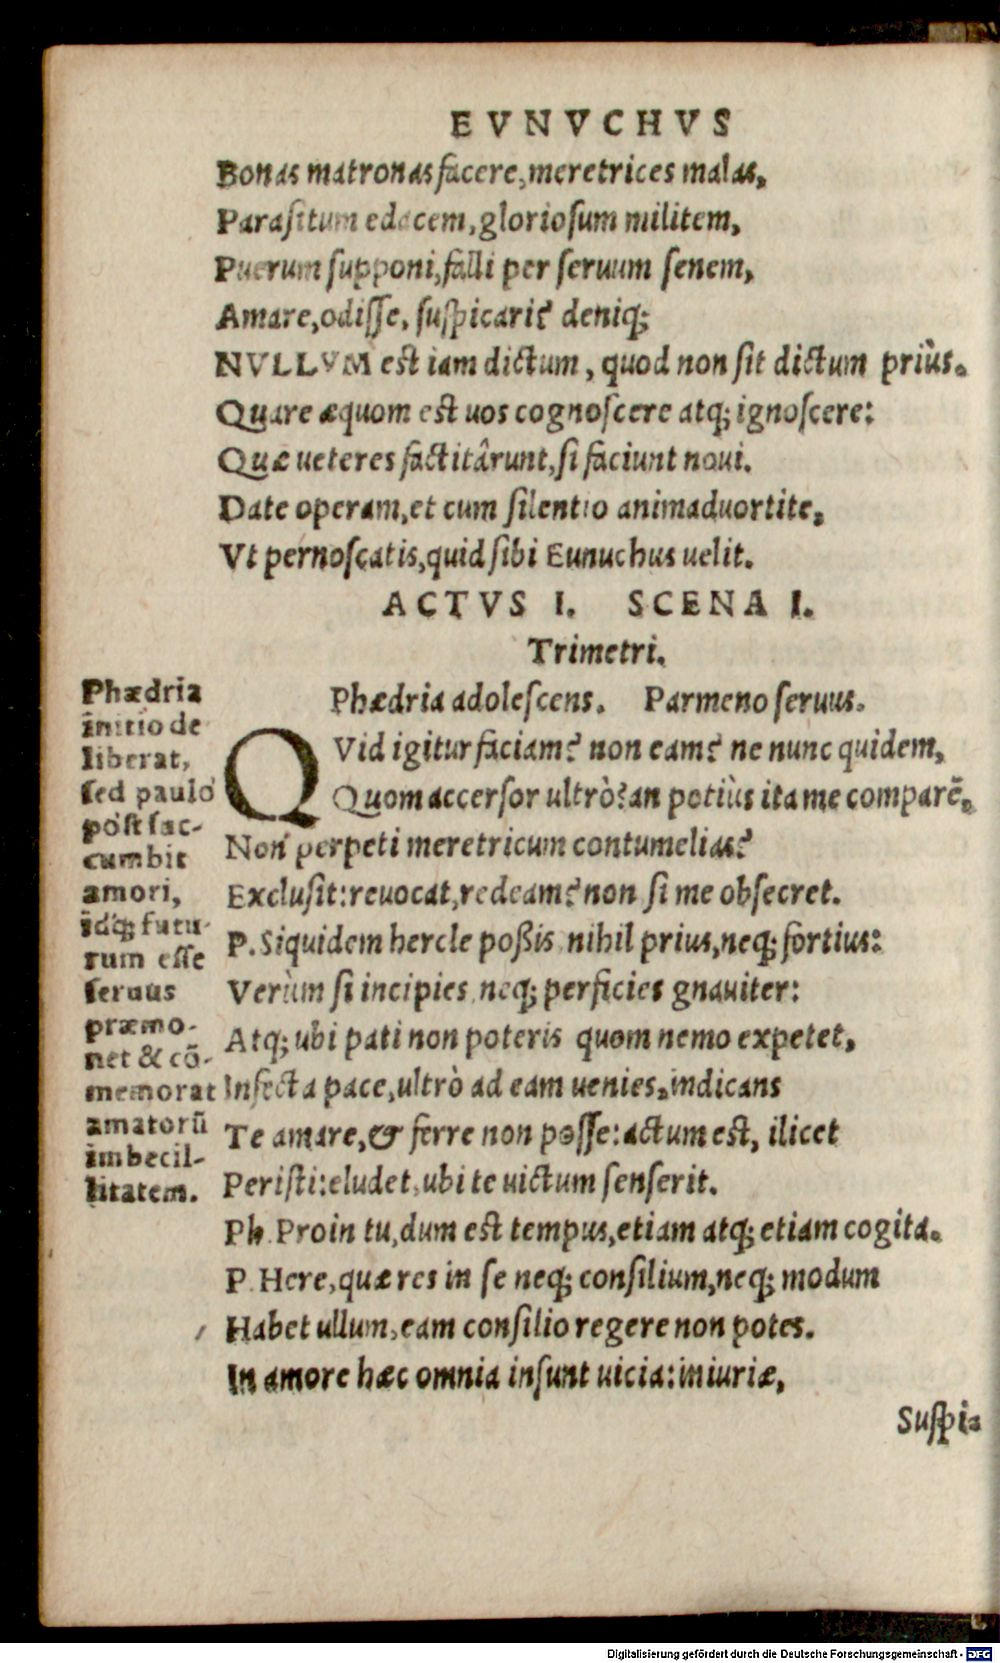 EVNVCHVS
Bonas matronas facere, meretrices malas,
Parasitum edacem, gloriosum militem,
Puerum supponi, falli per seruum senem,
Amare, odisse, suspicari? deniq;
NVLLVM est iam dictum, quod non sit dictum priùs.
Quare æquom est uos cognoscere atq; ignoscere:
Quæ ueteres factitârunt, si faciunt noui.
Date operam, et cum silentio animaduortite,
Vt pernoscatis, quid sibi Eunuchus uelit.
ACTVS I. SCENA I.
Trimetri.
Phædria adolescens. Parmeno seruus.
QVid igitur faciam? non eam? ne nunc quidem,
Quom accersor ultrò? an potiùs ita me comparē,
Non perpeti meretricum contumelias?
Exclusit: reuocat, redeam? non si me obsecret.
P. Siquidem hercle poßis nihil prius, neq; fortius:
Verùm si incipies neq; perficies gnauiter:
Atq; ubi pati non poteris quom nemo expetet,
Infecta pace, ultrò ad eam uenies, indicans
Te amare, & ferre non posse: actum est, ilicet
Peristi: eludet, ubi te uictum senserit.
Ph. Proin tu, dum est tempus, etiam atq; etiam cogita.
P. Here, quæ res in se neq; consilium, neq; modum
Habet ullum, eam consilio regere non potes.
In amore hæc omnia insunt uicia: iniuriæ,
Suspi-
Phædria
initio de
liberat,
sed paulò
pòst suc-
cumbit
amori,
idq; futu-
rum esse
seruus
præmo-
net & cō-
memorat
amatorū
imbecil-
litatem.
Digitalisierung gefördert durch die Deutsche Forschungsgemeinschaft - DFG